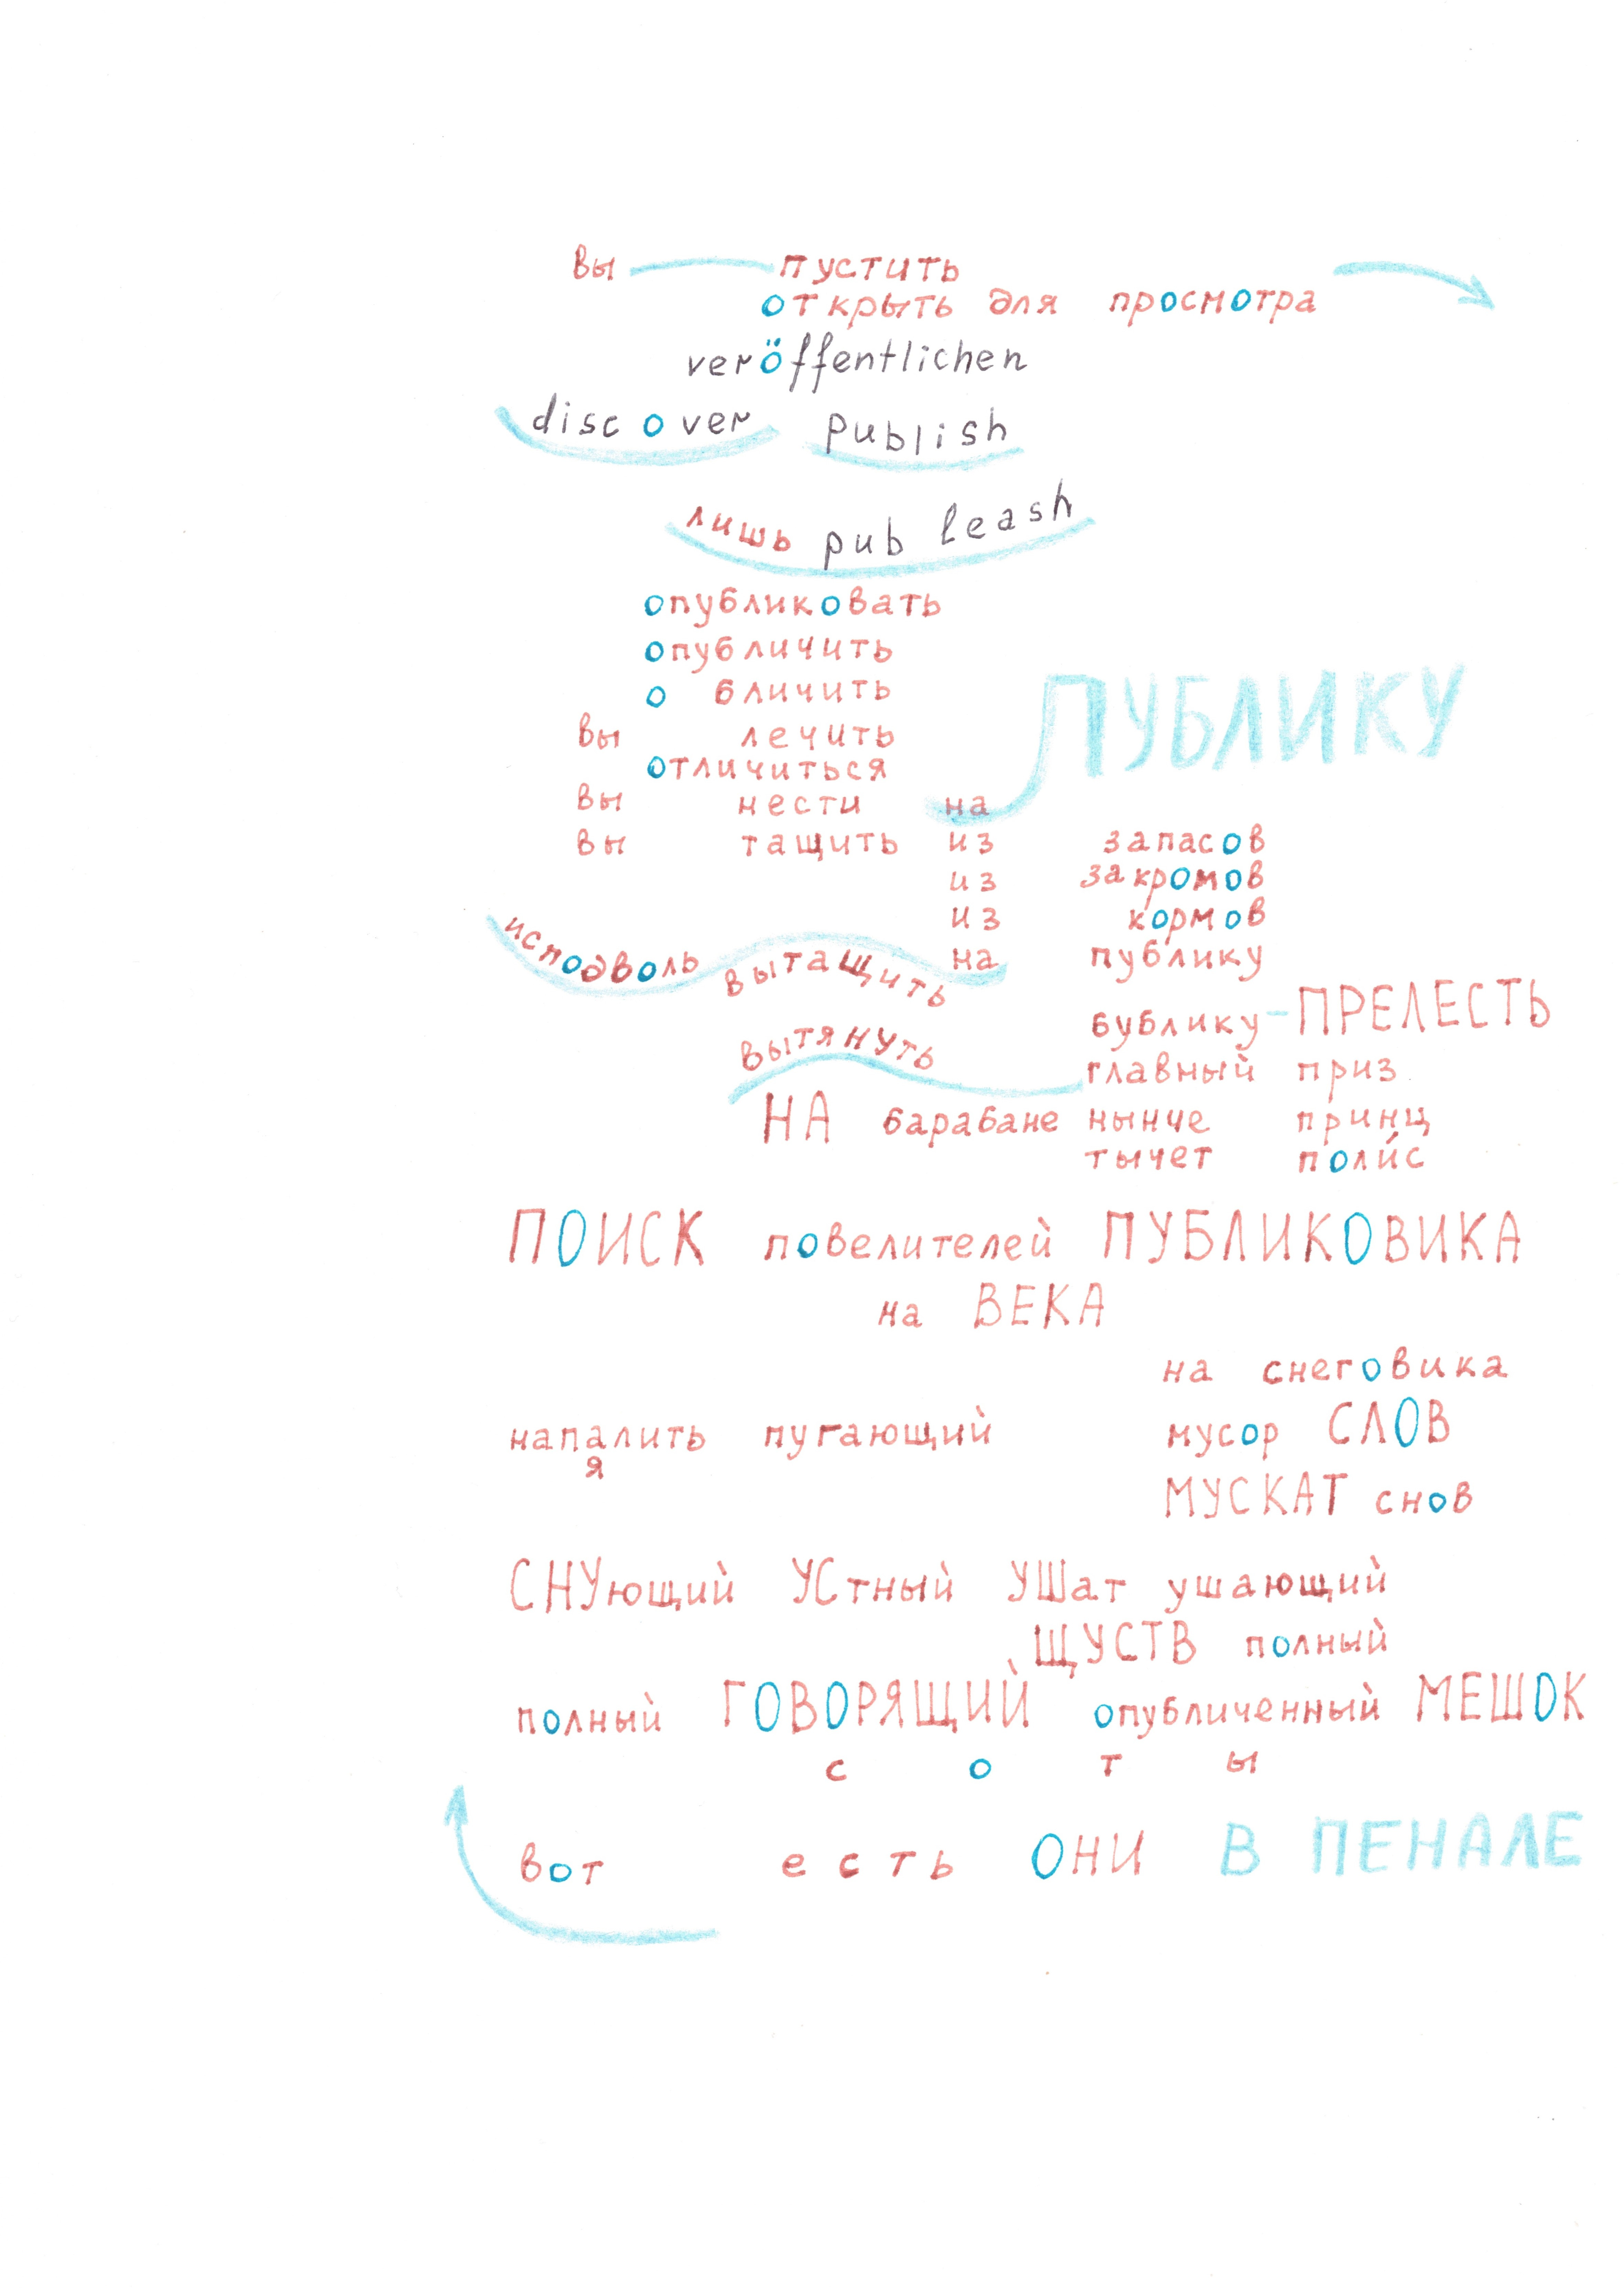 вы пустить
открыть для просмотра
veröffentlichen
discover publish
лишь pub leash
опубликовать
опубличить
о бличить
ПУБЛИКУ
вы лечить
отличиться
вы нести на
вы тащить из запасов
из закромов
из кормов
исподволь вытащить на публику
бублику - ПРЕЛЕСТЬ
вытянуть главный приз
НА барабане нынче принц
тычет поли́с
ПОИСК повелителей ПУБЛИКОВИКА
на ВЕКА
на снеговика
напалить пугающий мусор СЛОВ
я
МУСКАТ снов
СНУющий УСтный УШат ушающий
ЩУСТВ полный
полный ГОВОРЯЩИЙ опубличенный МЕШОК
с о т ы
вот есть ОНИ В ПЕНАЛЕ